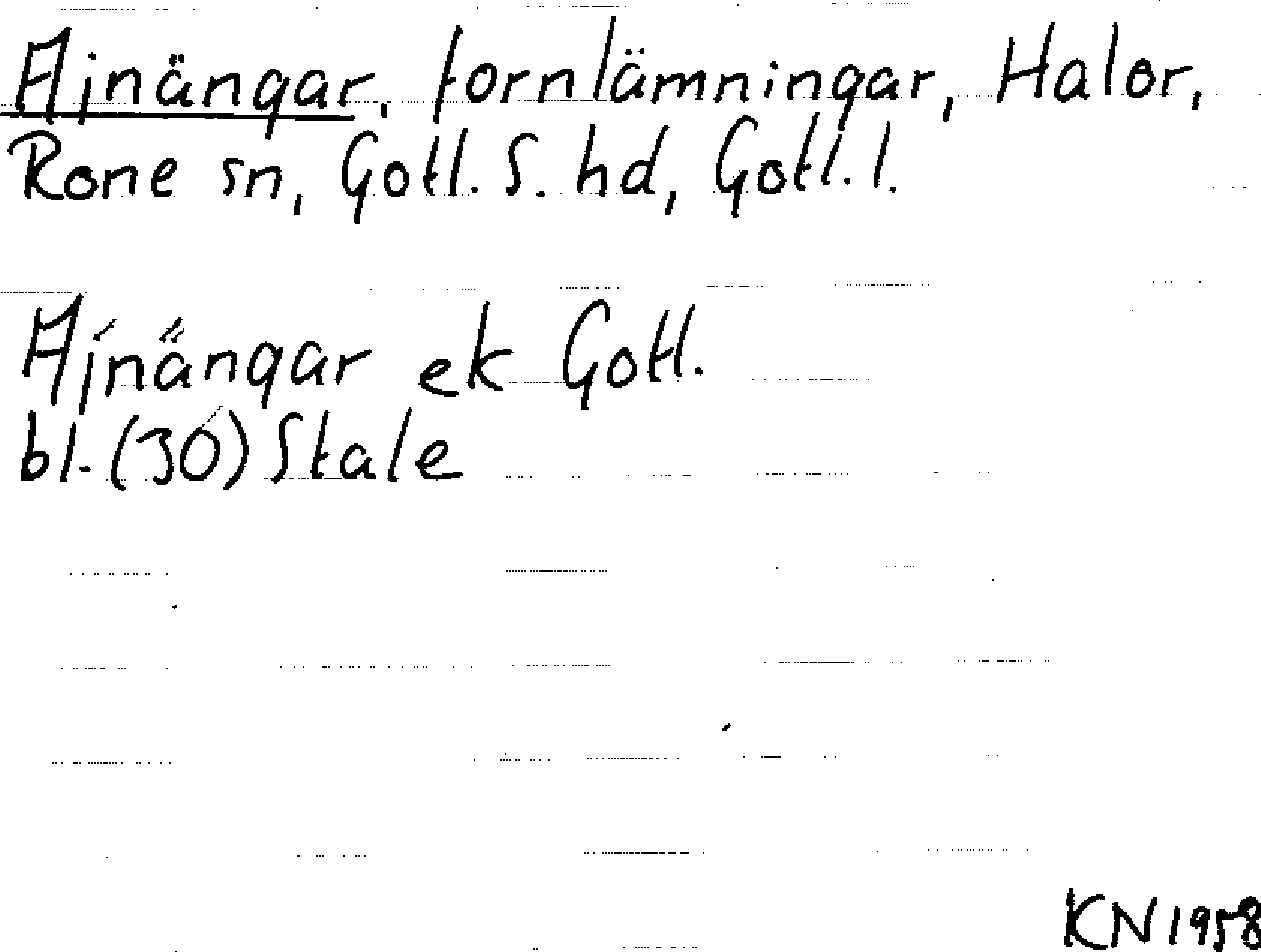 Ajnängar, fornlämningar, Halor,
Rone sn, Gotl. S. hd, Gotl. l.
Ajnängar ek Gotl.
bl. (30) Stale
KN 1958